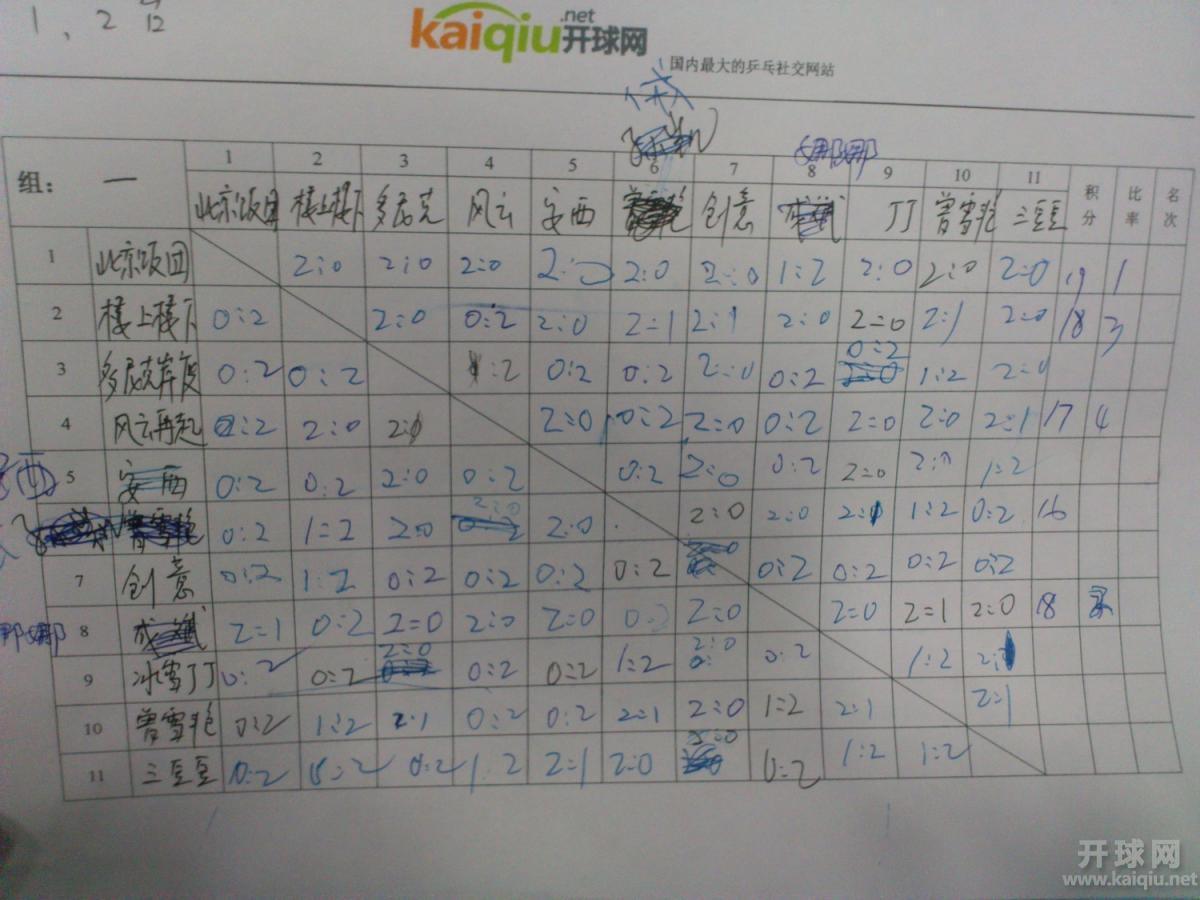 1，2
kaiqiu.net开球网
国内最大的乒乓社交网站
娜娜
组：一 1 2 3 4 5 6 7 8 9 10 11 积分 比率 名次
北京饭团 楼上楼下 多尼克 风云 安西 创意 丁丁 曾雪艳 三豆豆
1 北京饭团 2:0 2:0 2:0 2:0 2:0 2:0 1:2 2:0 2:0 2:0 19 1
2 楼上楼下 0:2 2:0 0:2 2:0 2:1 2:1 2:0 2:0 2:1 2:0 18 3
3 多尼克岸度 0:2 0:2 1:2 0:2 0:2 2:0 0:2 0:2 1:2 2:0
4 风云再起 0:2 2:0 2:0 2:0 0:2 2:0 0:2 2:0 2:0 2:1 17 4
5 安西 0:2 0:2 2:0 0:2 0:2 2:0 0:2 2:0 2:0 1:2
0:2 1:2 2:0 2:0 2:0 2:0 2:0 2:1 1:2 0:2 16
7 创意 0:2 1:2 0:2 0:2 0:2 0:2 0:2 0:2 0:2 0:2
娜娜 8 2:1 0:2 2:0 2:0 2:0 0:2 2:0 2:0 2:1 2:0 18
9 冰雪丁丁 0:2 0:2 2:0 0:2 0:2 1:2 2:0 0:2 1:2
10 曾雪艳 0:2 1:2 2:1 0:2 0:2 2:1 2:0 1:2 2:1 2:1
11 三豆豆 0:2 0:2 0:2 1:2 2:1 2:0 2:0 0:2 1:2 1:2
开球网
www.kaiqiu.net